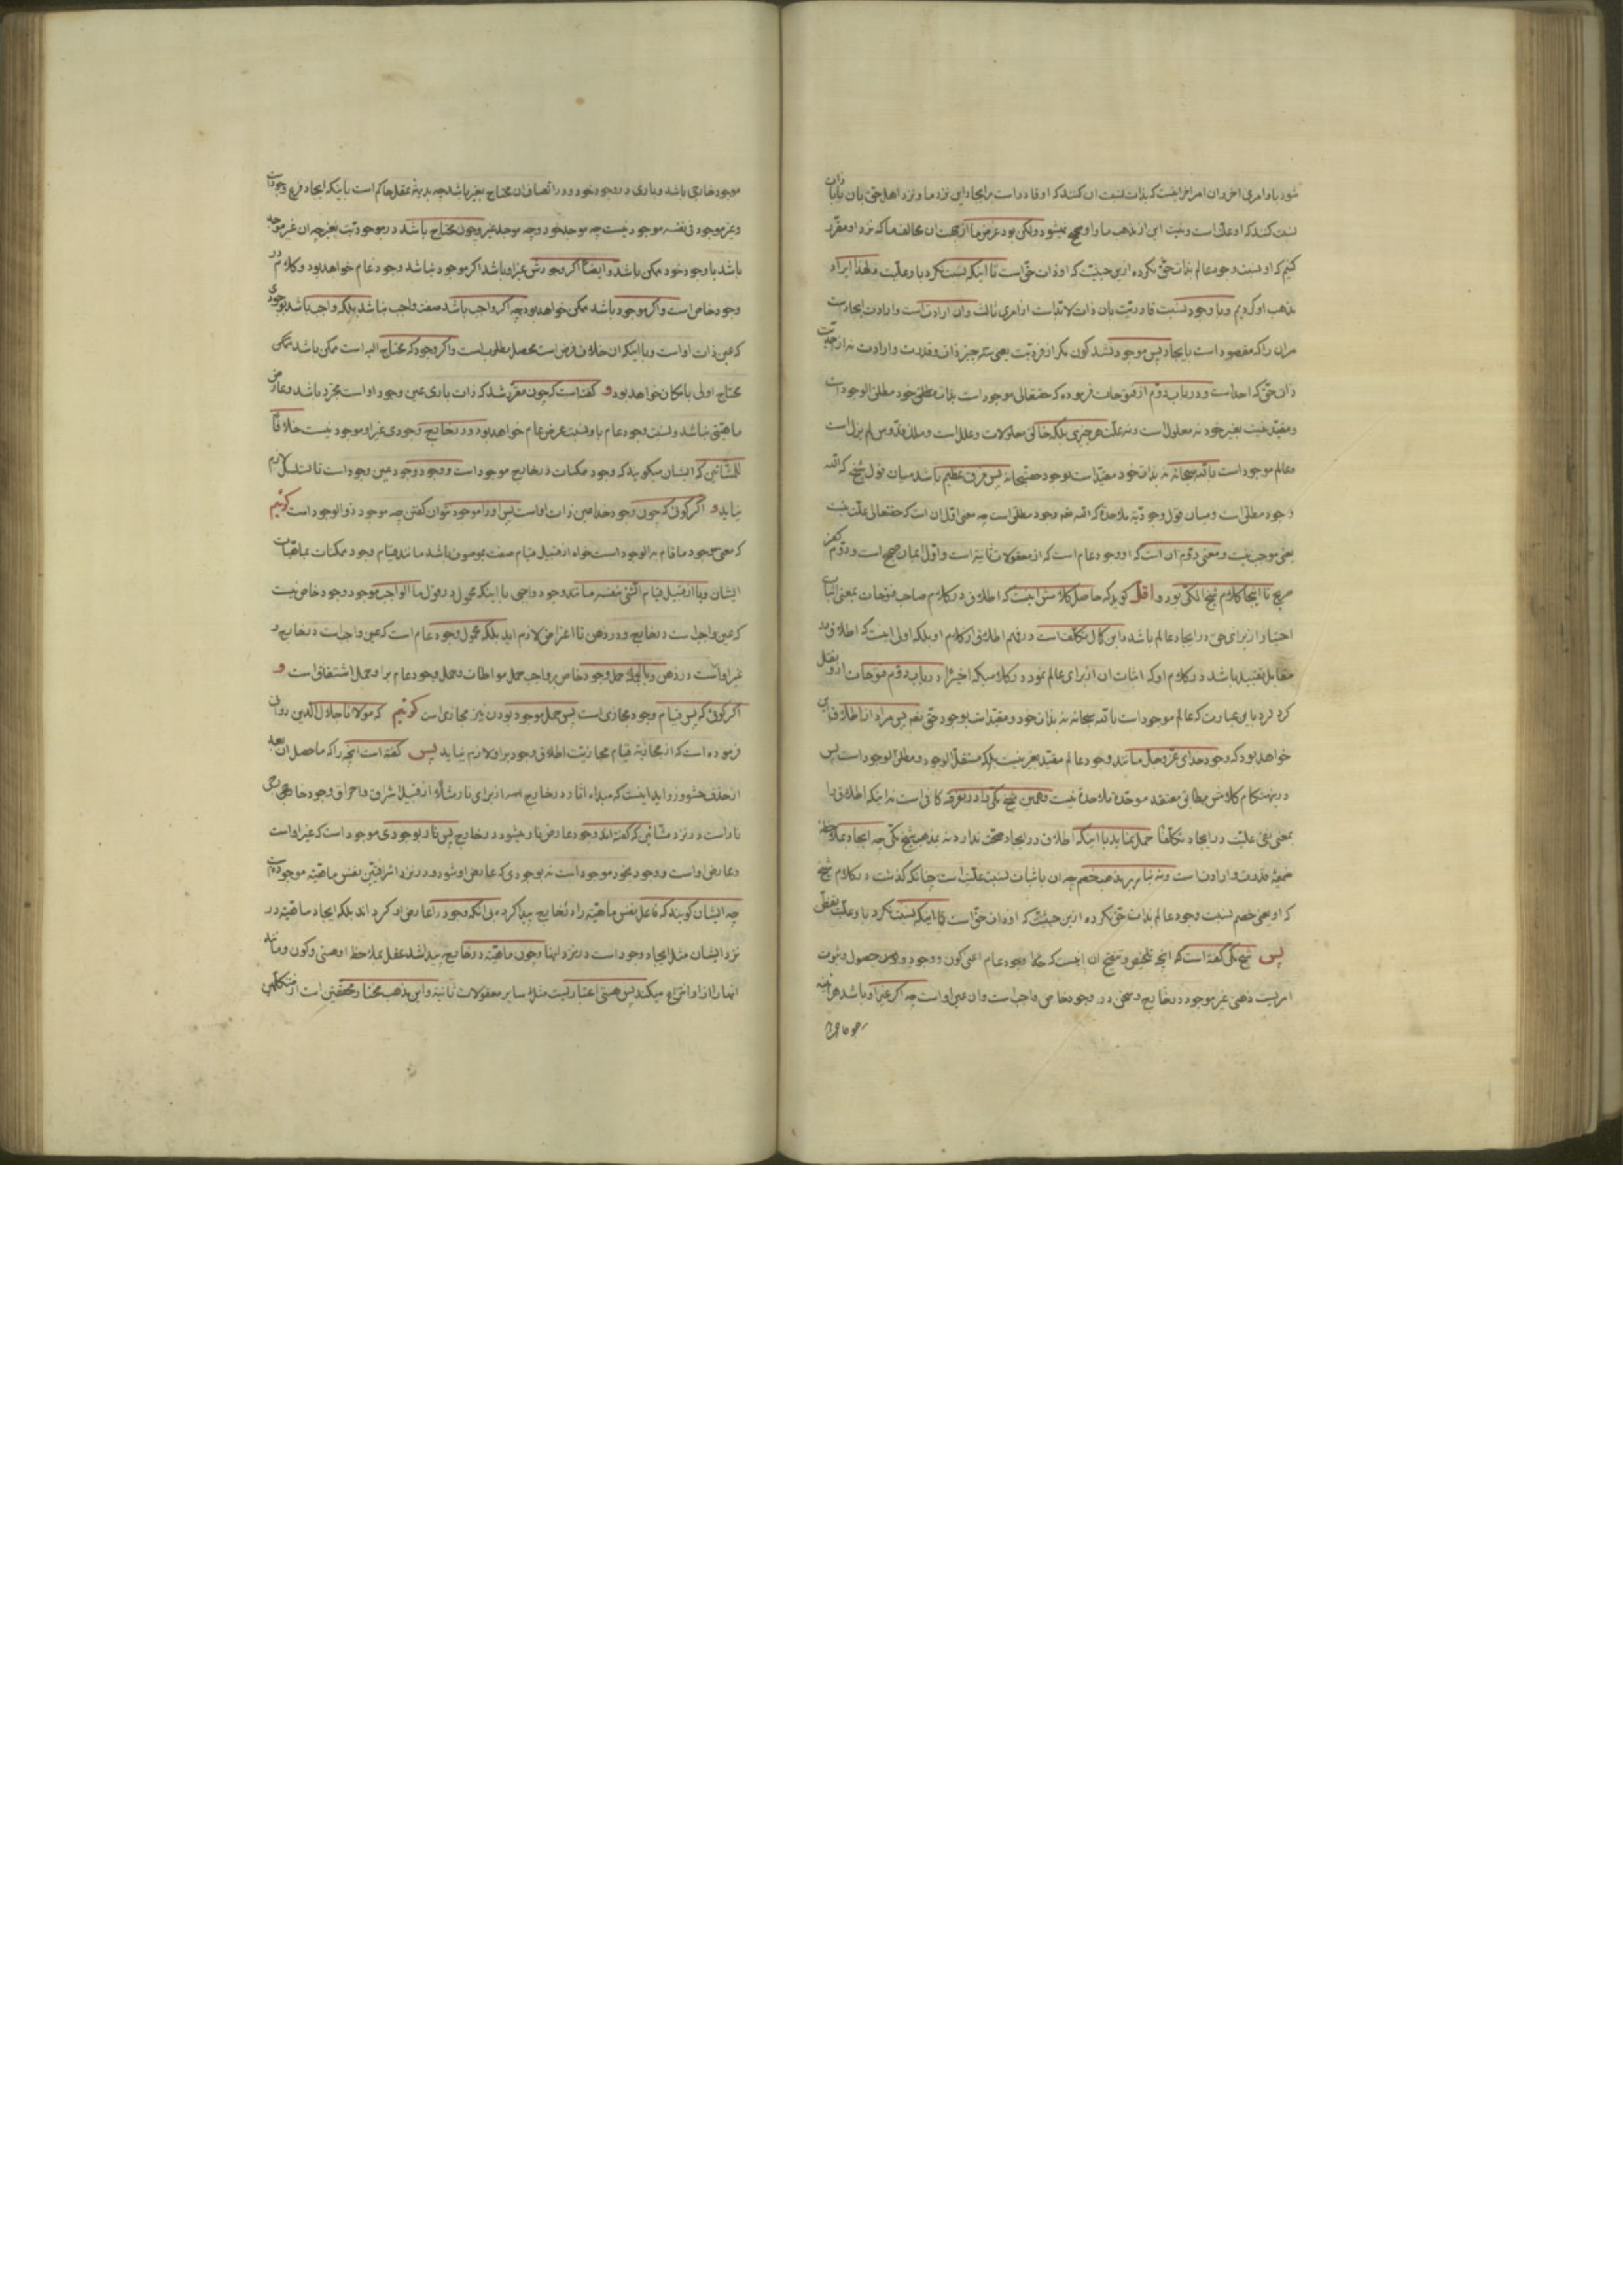 شود با وامری اخر و ان امر اخر نیست که بذات نسبت ان کنند که او قادر است بر ایجاد این نزد ما و نزد اهل حق بان یا بذات
نسبت کنند که او علت است و نیست این از مذهب ما و او صحیح نمیشود ولکن بود غرض ما از بحث ان مخالف ما که نزد او مقرر
کنیم که او نسبت وجود عالم بذات حق نکرده ازین حیثیت که او ذات حق است تا اینکه نسبت نکرد با و علیت و لهذا ایراد
مذهب او کردیم و با وجود نسبت قادریت بان ذات لابد است از امری ثالث و ان ارادت است و ارادت ایجاد است
مران را که مقصود است بایجاد پس موجود نشد کون مگر از فردیت یعنی سه چیز ذات و قدرت و ارادت نه از احدیت
ذات حق که احد است و در باب دوم از فتوحات فرموده که حقتعالی موجود است بذات مطلق خود مطلق الوجود است
و مقید نیست بغیر خود نه معلول است و نه علت هر چیزی بلکه خالق معلولات و علل است و ملک قدوس لم یزل است
و عالم موجود است بالله سبحانه نه بذات خود مقید است بوجود حق سبحانه پس فرق عظیم باشد میان قول شیخ که الله
وجود مطلق است و میان قول وجودیه ملاحده که الله نفس وجود مطلق است چه معنی اول ان است که حقتعالی علت نیست
یعنی موجب نیست و معنی دوم ان است که او وجود عام است که از معقولات ثانیه است و اول ایمان صحیح است و دوم کفر
صریح تا اینجا کلام شیخ مکی بود و اقل گوید که حاصل کلامش اینست که اطلاق در کلام صاحب فتوحات بمعنی اثبات
اختیار از برای حق در ایجاد عالم باشد و این کمال تکلف است در فهم اطلاق از کلام او بلکه اولی اینست که اطلاق در
مقابل تقیید باشد در کلام او که اثبات ان از برای عالم نمود در کلامیکه اخیرا در باب دوم فتوحات از و نقل
کرد باین عبارت که عالم موجود است بالله سبحانه نه بذات خود و مقید است بوجود حق نفسه پس مراد از اطلاق ان
خواهد بود که وجود خدای عز و جل مانند وجود عالم مقید بغیر نیست بلکه مستقل الوجود و مطلق الوجود است پس
درینهنگام کلامش مطابق معتقد موحده ملاحده نیست و همین شیخ مکی را در تفرقه کافی است نه اینکه اطلاق را
بمعنی نفی علیت در ایجاد متکلفا حمل نماید با اینکه اطلاق در ایجاد صحت ندارد نه بمذهب شیخ مکی چه ایجاد بملاحظه
ضمیمه قدرت و ارادت است و نه بنا بر مذهب خصم چه ان باثبات نسبت علیت است چنانکه گذشت در کلام شیخ
که او یعنی خصم نسبت وجود عالم بذات حق نکرده ازین حیثیت که او ذات حق است تا اینکه نسبت نکرد با و علیت یعنی
پس شیخ مکی گفته است که انچه تلخیص و تنقیح ان اینست که وجود عام اعنی کون و وجود و حصول و ثبوت
امریست ذهنی غیر موجود در خارج و سخن در وجود خاص واجب است و ان عین او است چه اگر غیر او باشد هر اینه
موجود خارجی باشد و باری در وجود خود و در اتصاف ان محتاج بغیر باشد چه بدیهه عقل حاکم است باینکه ایجاد فرع وجود است
و غیر موجود فی نفسه موجود نیست چه موجد خود و چه موجد غیر و چون محتاج باشد در موجودیت بغیر چه ان غیر موجد
باشد یا وجود خود ممکن باشد و ایضا اگر وجودش غیر او باشد اگر موجود نباشد وجود عام خواهد بود و کلام در
وجود خاص است و اگر موجود باشد ممکن خواهد بود چه اگر واجب باشد صفت واجب نباشد بلکه واجب باشد بوجودی
که عین ذات او است و با اینکه ان خلاف فرض است محصل مطلوب است و اگر وجود که محتاج الیه است ممکن باشد ممکن
محتاج اولی بامکان خواهد بود و گفته است که چون مقرر شد که ذات باری عین وجود او است مجرد باشد و عارض
ماهیتی نباشد و نسبت وجود عام باو نسبت عرض عام خواهد بود و در خارج وجودی غیر او موجود نیست خلافا
للمشائین که ایشان میگویند که وجود ممکنات در خارج موجود است و وجود وجود عین وجود است تا تسلسل لازم
نیاید و اگر گوئی که چون وجود خدا عین ذات او است پس او را موجود نتوان گفتن چه موجود ذو الوجود است گوئیم
که معنی موجود ما قام به الوجود است خواه از قبیل قیام صفت بموصوف باشد مانند قیام وجود ممکنات بماهیات
ایشان و یا از قبیل قیام الشئ بنفسه مانند وجود واجبی با اینکه محمول در قول ما الواجب موجود وجود خاص نیست
که عین واجب است در خارج و در ذهن تا اعتراض لازم اید بلکه محمول وجود عام است که عین واجب است در خارج و
غیر او است در ذهن و بالجمله حمل وجود خاص بر واجب حمل مواطات و حمل وجود عام بر او حمل اشتقاقی است و
اگر گوئی که پس قیام وجود مجازی است پس حمل موجود بودن نیز مجازی است گوئیم که مولانا جلال الدین دوانی
فرموده است که از مجازیة قیام مجازیت اطلاق وجود بر او لازم نیاید پس گفته است انچه را که ما حصل ان بعد
از حذف حشو و زواید اینست که مبداء اثار در خارج امر از برای نار مثلا از قبیل اشراق و احراق وجود خارجی
نار است در نزد مشائین که گفته اند وجود عارض نار میشود در خارج پس نار بوجودی موجود است که غیر او است
و عارض او است و وجود بخود موجود است نه بوجودی که عارض او شود و در نزد اشراقیین نفس ماهیته موجود است
چه ایشان گویند که فاعل نفس ماهیته را در خارج پیدا کرد نی انکه وجود را عارض او کرداند بلکه ایجاد ماهیته در
نزد ایشان مثل ایجاد وجود است در نزد اینها و چون ماهیته در خارج پیدا شد عقل بملاحظه او هستی و کون و مانند
انها را از او انتزاع میکند پس هستی اعتباریست مثل سایر معقولات ثانیه و این مذهب مختار محققین است از متکلمین